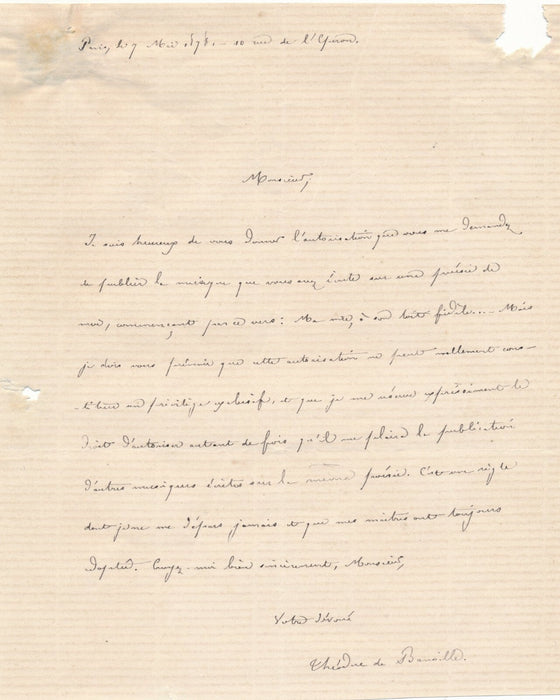 Paris, le 7 Mai 1878. — 10 rue de l'Éperon.
Monsieur,
Je suis heureux de vous donner l'autorisation que vous me demandez
de publier la musique que vous avez écrite sur une poésie de
moi, commençant par ce vers: à son toit fidèle... — Mais
je dois vous prévenir que cette autorisation ne peut nullement cons-
tituer un privilège exclusif, et que je me réserve expressément le
droit d'autoriser autant de fois qu'il me plaira la publication
d'autres musiques écrites sur la même poésie. C'est une règle
dont je ne me dépars jamais et que mes maîtres ont toujours
adoptée. Croyez-moi bien sincèrement, Monsieur,
Votre dévoué
Théodore de Banville.